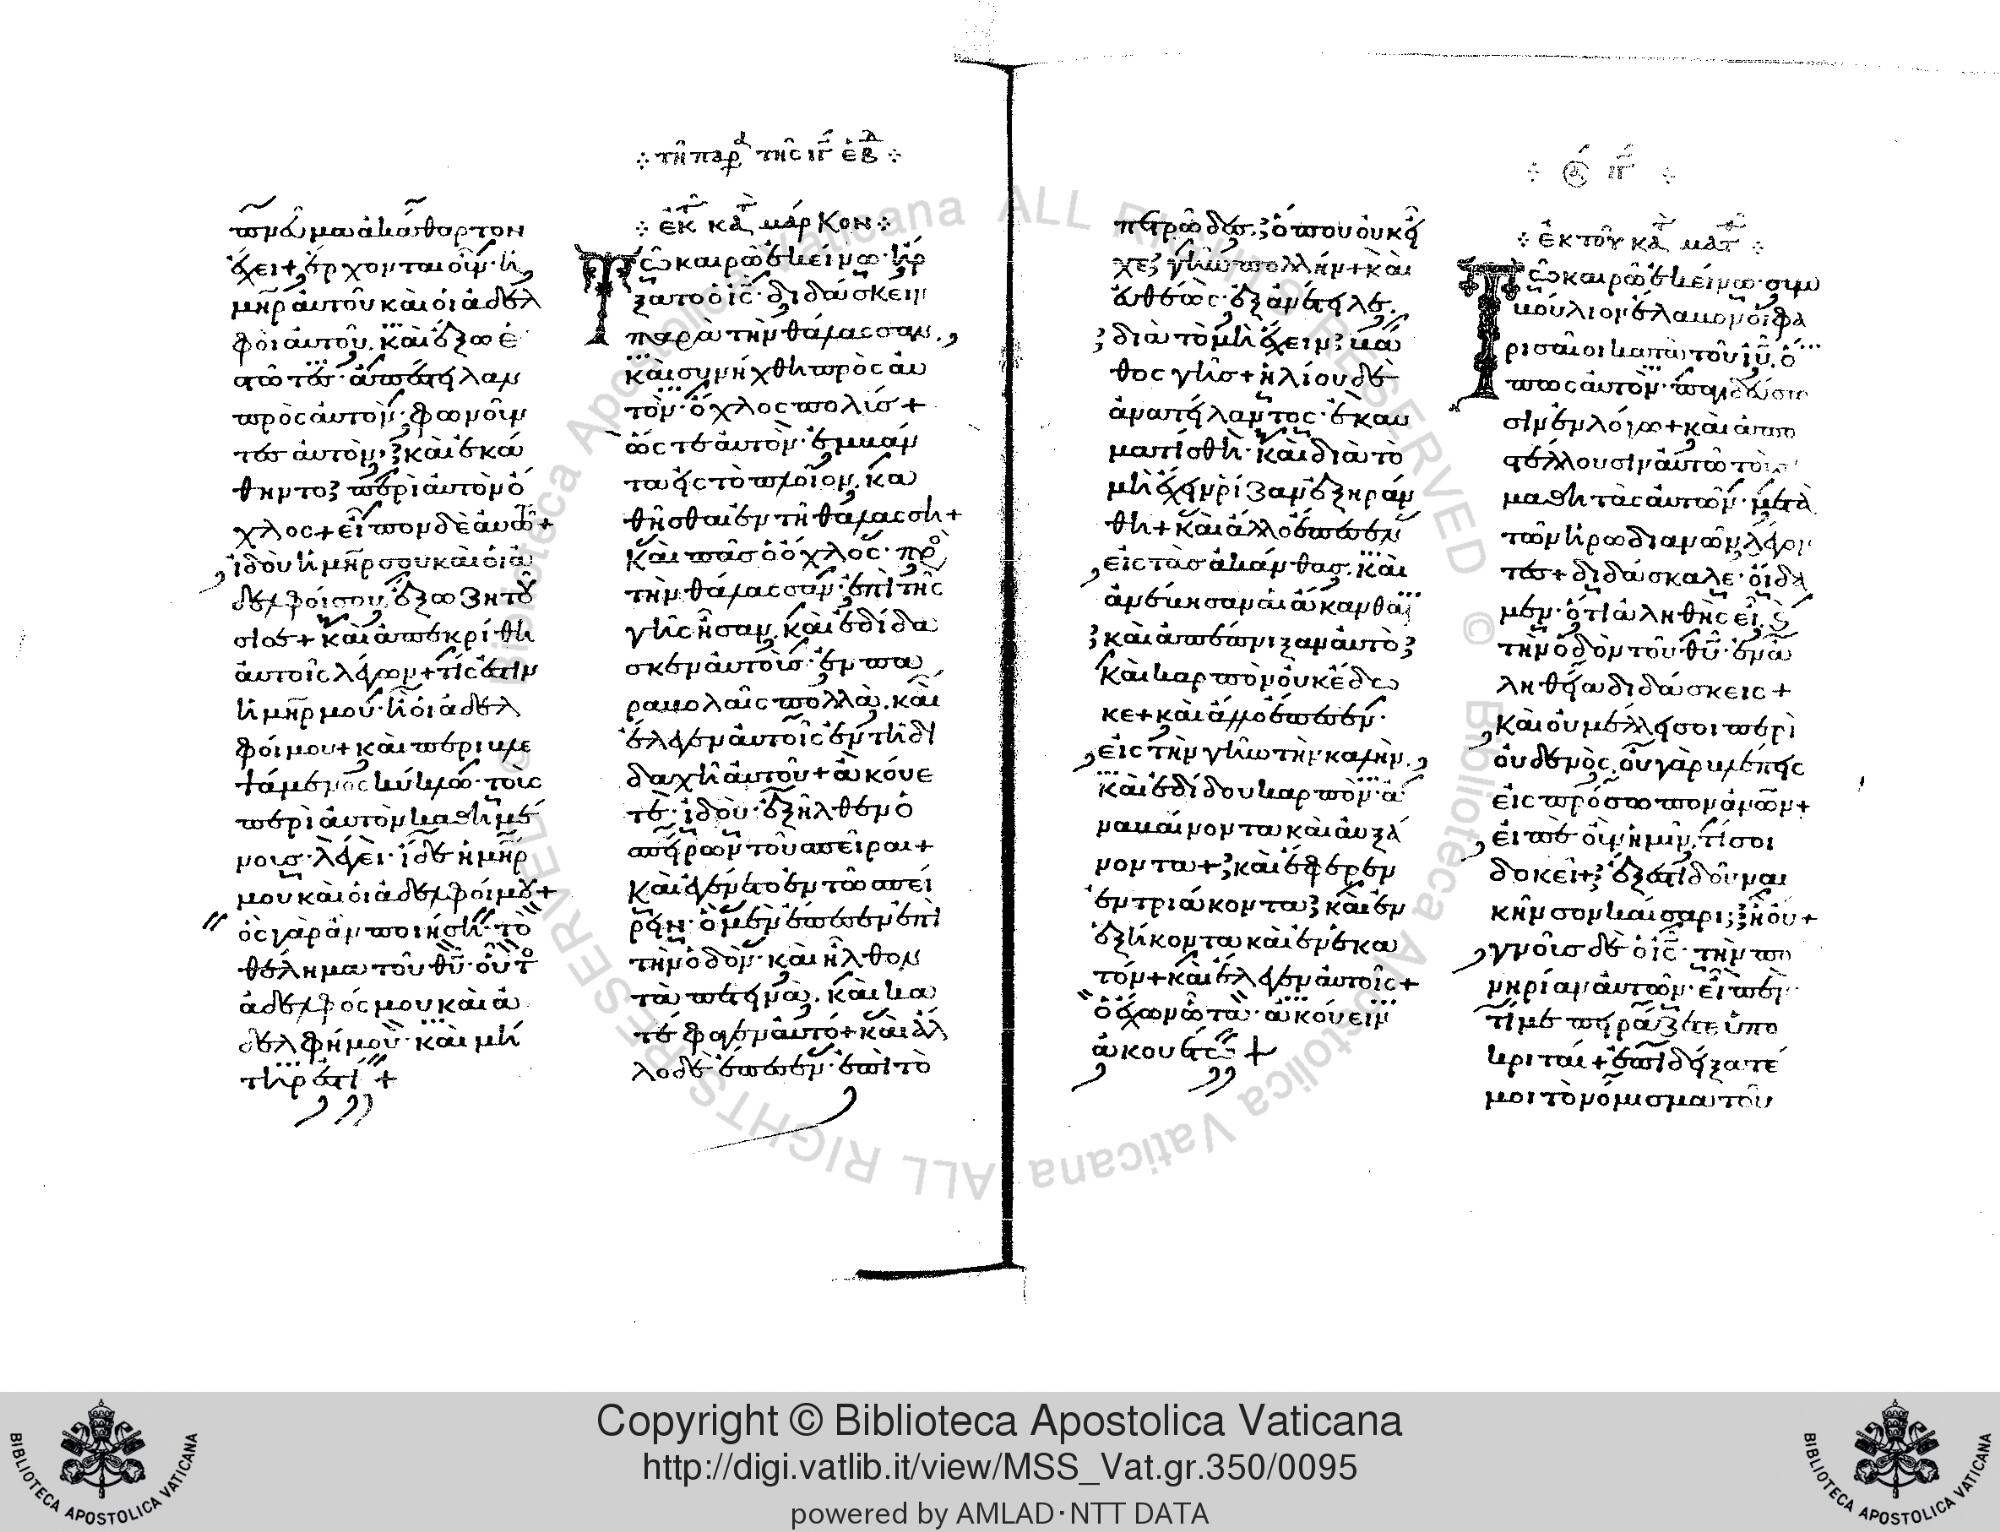 πν̅α ἀκάθαρτον
ἔχει + ἔρχονται οὖν· ἡ
μη̅ρ αὐτοῦ καὶ οἱ ἀδελ
φοὶ αὐτοῦ. καὶ ἔξω ἑ
στῶτες· ἀπέστειλαν
πρὸς αὐτὸν· φωνοῦν
τες αὐτὸν· καὶ ἐκά
θητο περὶ αὐτὸν ὄ
χλος + εἶπον δὲ αὐτῶ +
ἰδοὺ ἡ μη̅ρ σου καὶ οἱ ἀ
δελφοί σου, ἔξω ζητοῦ
σί σε + καὶ ἀπεκρίθη
αὐτοῖς λέγων + τίς ἐστιν
ἡ μη̅ρ μού· ἢ οἱ ἀδελ
φοί μου + καὶ περιβλε
ψάμενος κύκλω· τοὺς
περὶ αὐτὸν καθημέ
νους· λέγει· ἴδε ἡ μη̅ρ
μου καὶ οἱ ἀδελφοί μου +
ὃς γὰρ ἂν ποιήση· τὸ
θέλημα τοῦ θυ̅· οὗτος
ἀδελφός μου καὶ ἀ
δελφή μοὺ· καὶ μή
τηρ ἐστί +
τῆ παρα τῆς ιγ ἑβδ
ἐκ τ κατ μάρκον
Τῶ καιρῶ ἐκείνω· ἤρ
ξατο ὁ ις̅· διδάσκειν
παρὰ τὴν θάλασσαν.
καὶ συνήχθη πρὸς αὐ
τὸν· ὄχλος πολύς +
ὥστε αὐτὸν· ἐμβάν
τα εἰς τὸ πλοῖον, κα
θῆσθαι ἐν τῆ θαλάσση +
καὶ πᾶς ὁ ὄχλος· πρὸς
τὴν θάλασσαν· ἐπὶ τῆς
γῆς ἦσαν, καὶ ἐδίδα
σκεν αὐτοὺς· ἐν πα
ραβολαῖς πολλὰ, καὶ
ἔλεγεν αὐτοῖς ἐν τῆ δι
δαχῆ αὐτοῦ + ἀκούε
τε· ἰδοὺ· ἐξῆλθεν ὁ
σπείρων τοῦ σπεῖραι +
καὶ ἐγένετο ἐν τῶ σπεί
ρειν· ὃ μὲν ἔπεσεν ἐπὶ
τὴν ὁδὸν· καὶ ἦλθον
τὰ πετεινὰ. καὶ κα
τέφαγεν αὐτό + καὶ ἄλ
λο δὲ ἔπεσεν· ἐπὶ τὸ
πετρῶδες. ὅπου οὐκ εἶ
χε γῆν πολλήν + καὶ
εὐθέως· ἐξανέτειλε.
διὰ τὸ μὴ ἔχειν βά
θος γῆς + ἡλίου δὲ
ἀνατείλαντος· ἐκαυ
ματίσθη· καὶ διὰ τὸ
μὴ ἔχειν ῥίζαν ἐξηράν
θη + καὶ ἄλλο ἔπεσεν
εἰς τὰς ἀκάνθας. καὶ
ἀνέβησαν αἱ ἄκανθαι
καὶ ἀπέπνιξαν αὐτὸ
καὶ καρπὸν οὐκ ἔδω
κε + καὶ ἄλλο ἔπεσεν·
εἰς τὴν γῆν τὴν καλὴν.
καὶ ἐδίδου καρπὸν· ἀ
ναβαίνοντα καὶ αὐξά
νοντα + καὶ ἔφερεν
ἐν τριάκοντα καὶ ἐν
ἑξήκοντα καὶ ἐν ἑκα
τόν + καὶ ἔλεγεν αὐτοῖς +
ὁ ἔχων ὦτα· ἀκούειν
ἀκουέτω +
ιγ
ἐκ τοῦ κατ ματ
Τῶ καιρῶ ἐκείνω· συμ
βούλιον ἔλαβον οἱ φα
ρισαῖοι κατὰ τοῦ ιυ̅, ὅ
πως αὐτὸν· παγιδεύσω
σιν ἐν λόγω + καὶ ἀπο
στέλλουσιν αὐτῶ τοὺς
μαθητὰς αὐτῶν· μετὰ
τῶν ἡρωδιανῶν λέγον
τες + διδάσκαλε· οἴδα
μεν· ὅτι ἀληθὴς εἶ, καὶ
τὴν ὁδὸν τοῦ θυ̅· ἐν ἀ
ληθεία διδάσκεις +
καὶ οὐ μέλλει σοι περὶ
οὐδενὸς, οὐ γὰρ βλέπεις
εἰς πρόσωπον ἀν̅ων +
εἰπὲ οὖν ἡμῖν, τί σοι
δοκεῖ + ἔξεστι δοῦναι
κῆνσον καίσαρι; ἢ οὔ +
γνοὺς δὲ ὁ ις̅· τὴν πο
νηρίαν αὐτῶν· εἶπεν·
τί με πειράζετε ὑπο
κριταί + ἐπιδείξατέ
μοι τὸ νόμισμα τοῦ
Copyright © Biblioteca Apostolica Vaticana
http://digi.vatlib.it/view/MSS_Vat.gr.350/0095
powered by AMLAD·NTT DATA
BIBLIOTECA APOSTOLICA VATICANA
BIBLIOTECA APOSTOLICA VATICANA
© Biblioteca Apostolica Vaticana ALL RIGHTS RESERVED © Biblioteca Apostolica Vaticana ALL RIGHTS RESERVED